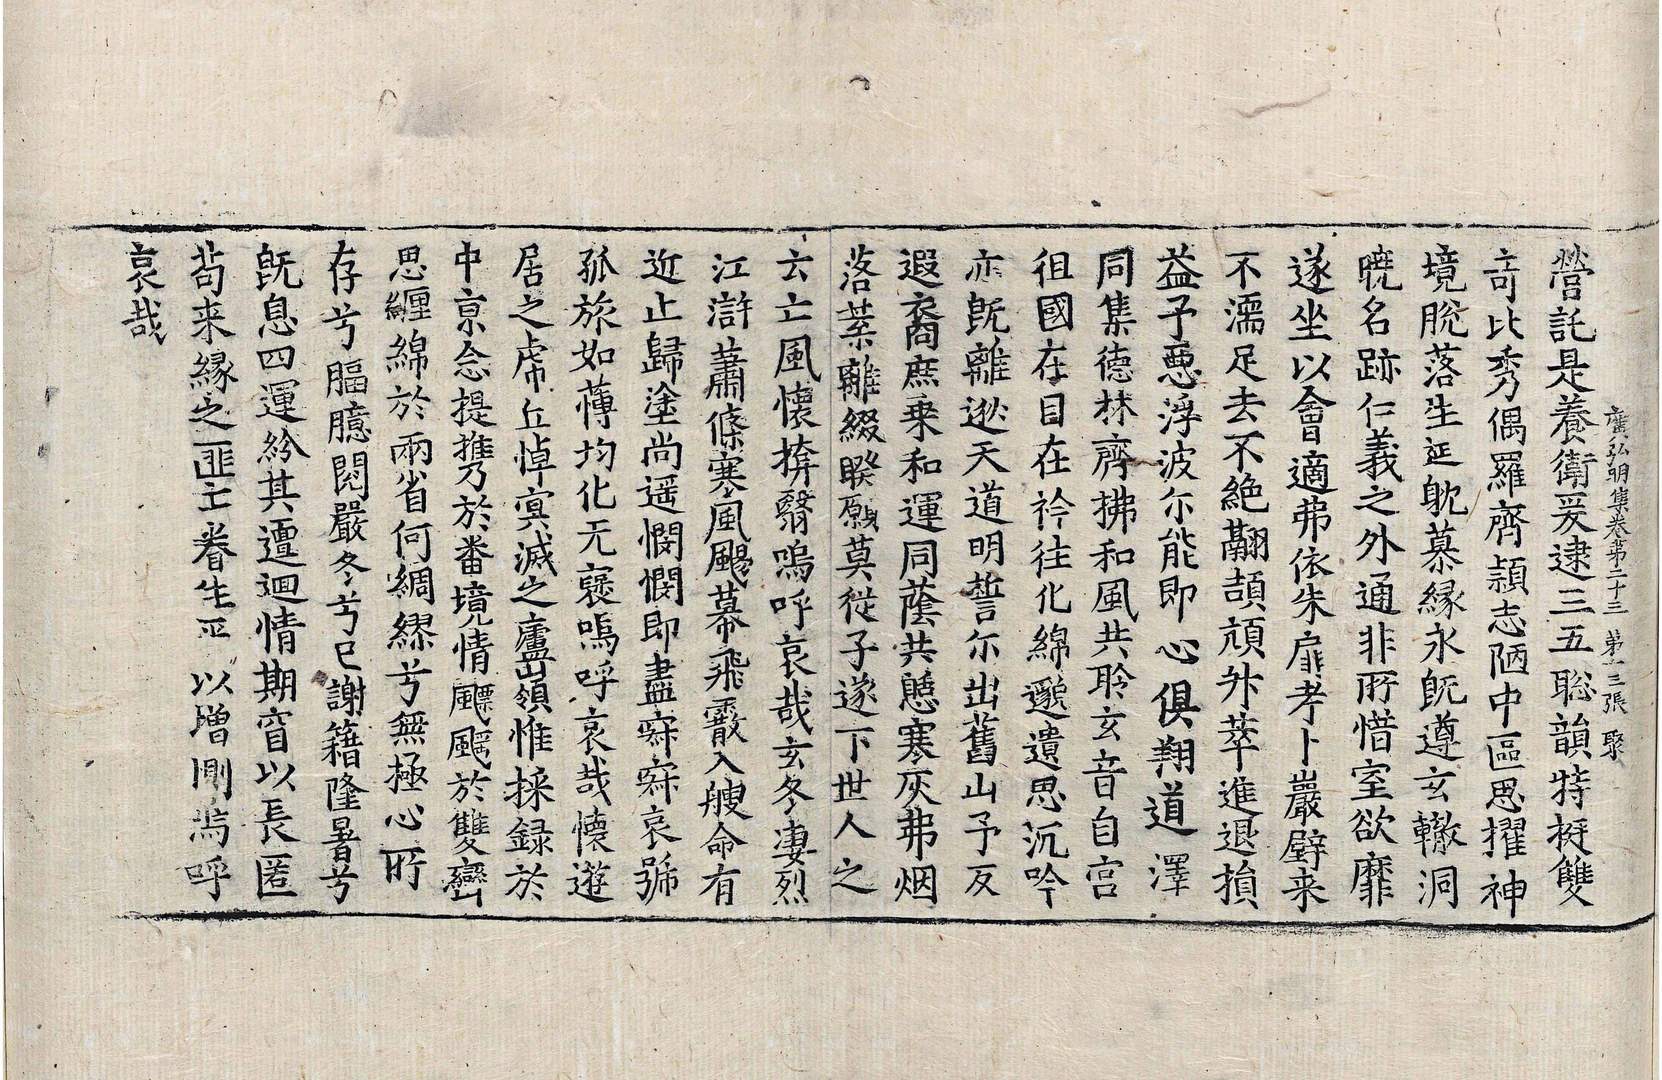 廣弘明集卷第二十三 第十三張 聚
營託是養衛爰逮三五聡韻特挺雙
竒比秀偶羅齊頴志陋中區思擢神
境脫落生延躭慕緣永旣遵玄轍洞
曉名跡仁義之外通非所惜室欲靡
遂坐以會適弗依朱扉考卜巖壁来
不濡足去不絶翮頡頏升萃進退損
益予惪浮波尔能即 心俱翔道 澤
同集德林齊拂和風共聆玄音自宫
徂國在目在衿往化綿邈遺思沉吟
亦旣離逖天道明誓尔出舊山予反
遐裔庶乗和運同蔭共憇寒灰弗烟
落葉離綴睽願莫從子遂下世人之
云亡風懷掩翳嗚呼哀哉玄冬凄烈
江滸蕭條寒風飈幕飛霰入艘命有
近止歸塗尚遥憫憫即盡寂寂哀號
孤旅如薄均化无襃嗚呼哀哉懷遊
居之虎丘悼㝠滅之廬嶺惟採録於
中京念提携於番境情飄颻於雙巒
思纏綿於兩省何綢繆兮無極心所
存兮膈臆閱嚴冬兮已謝籍隆暑兮
旣息四運紛其邅迴情期窅以長匿
苟来縁之匪亡眷生平以増惻嗚呼
哀哉